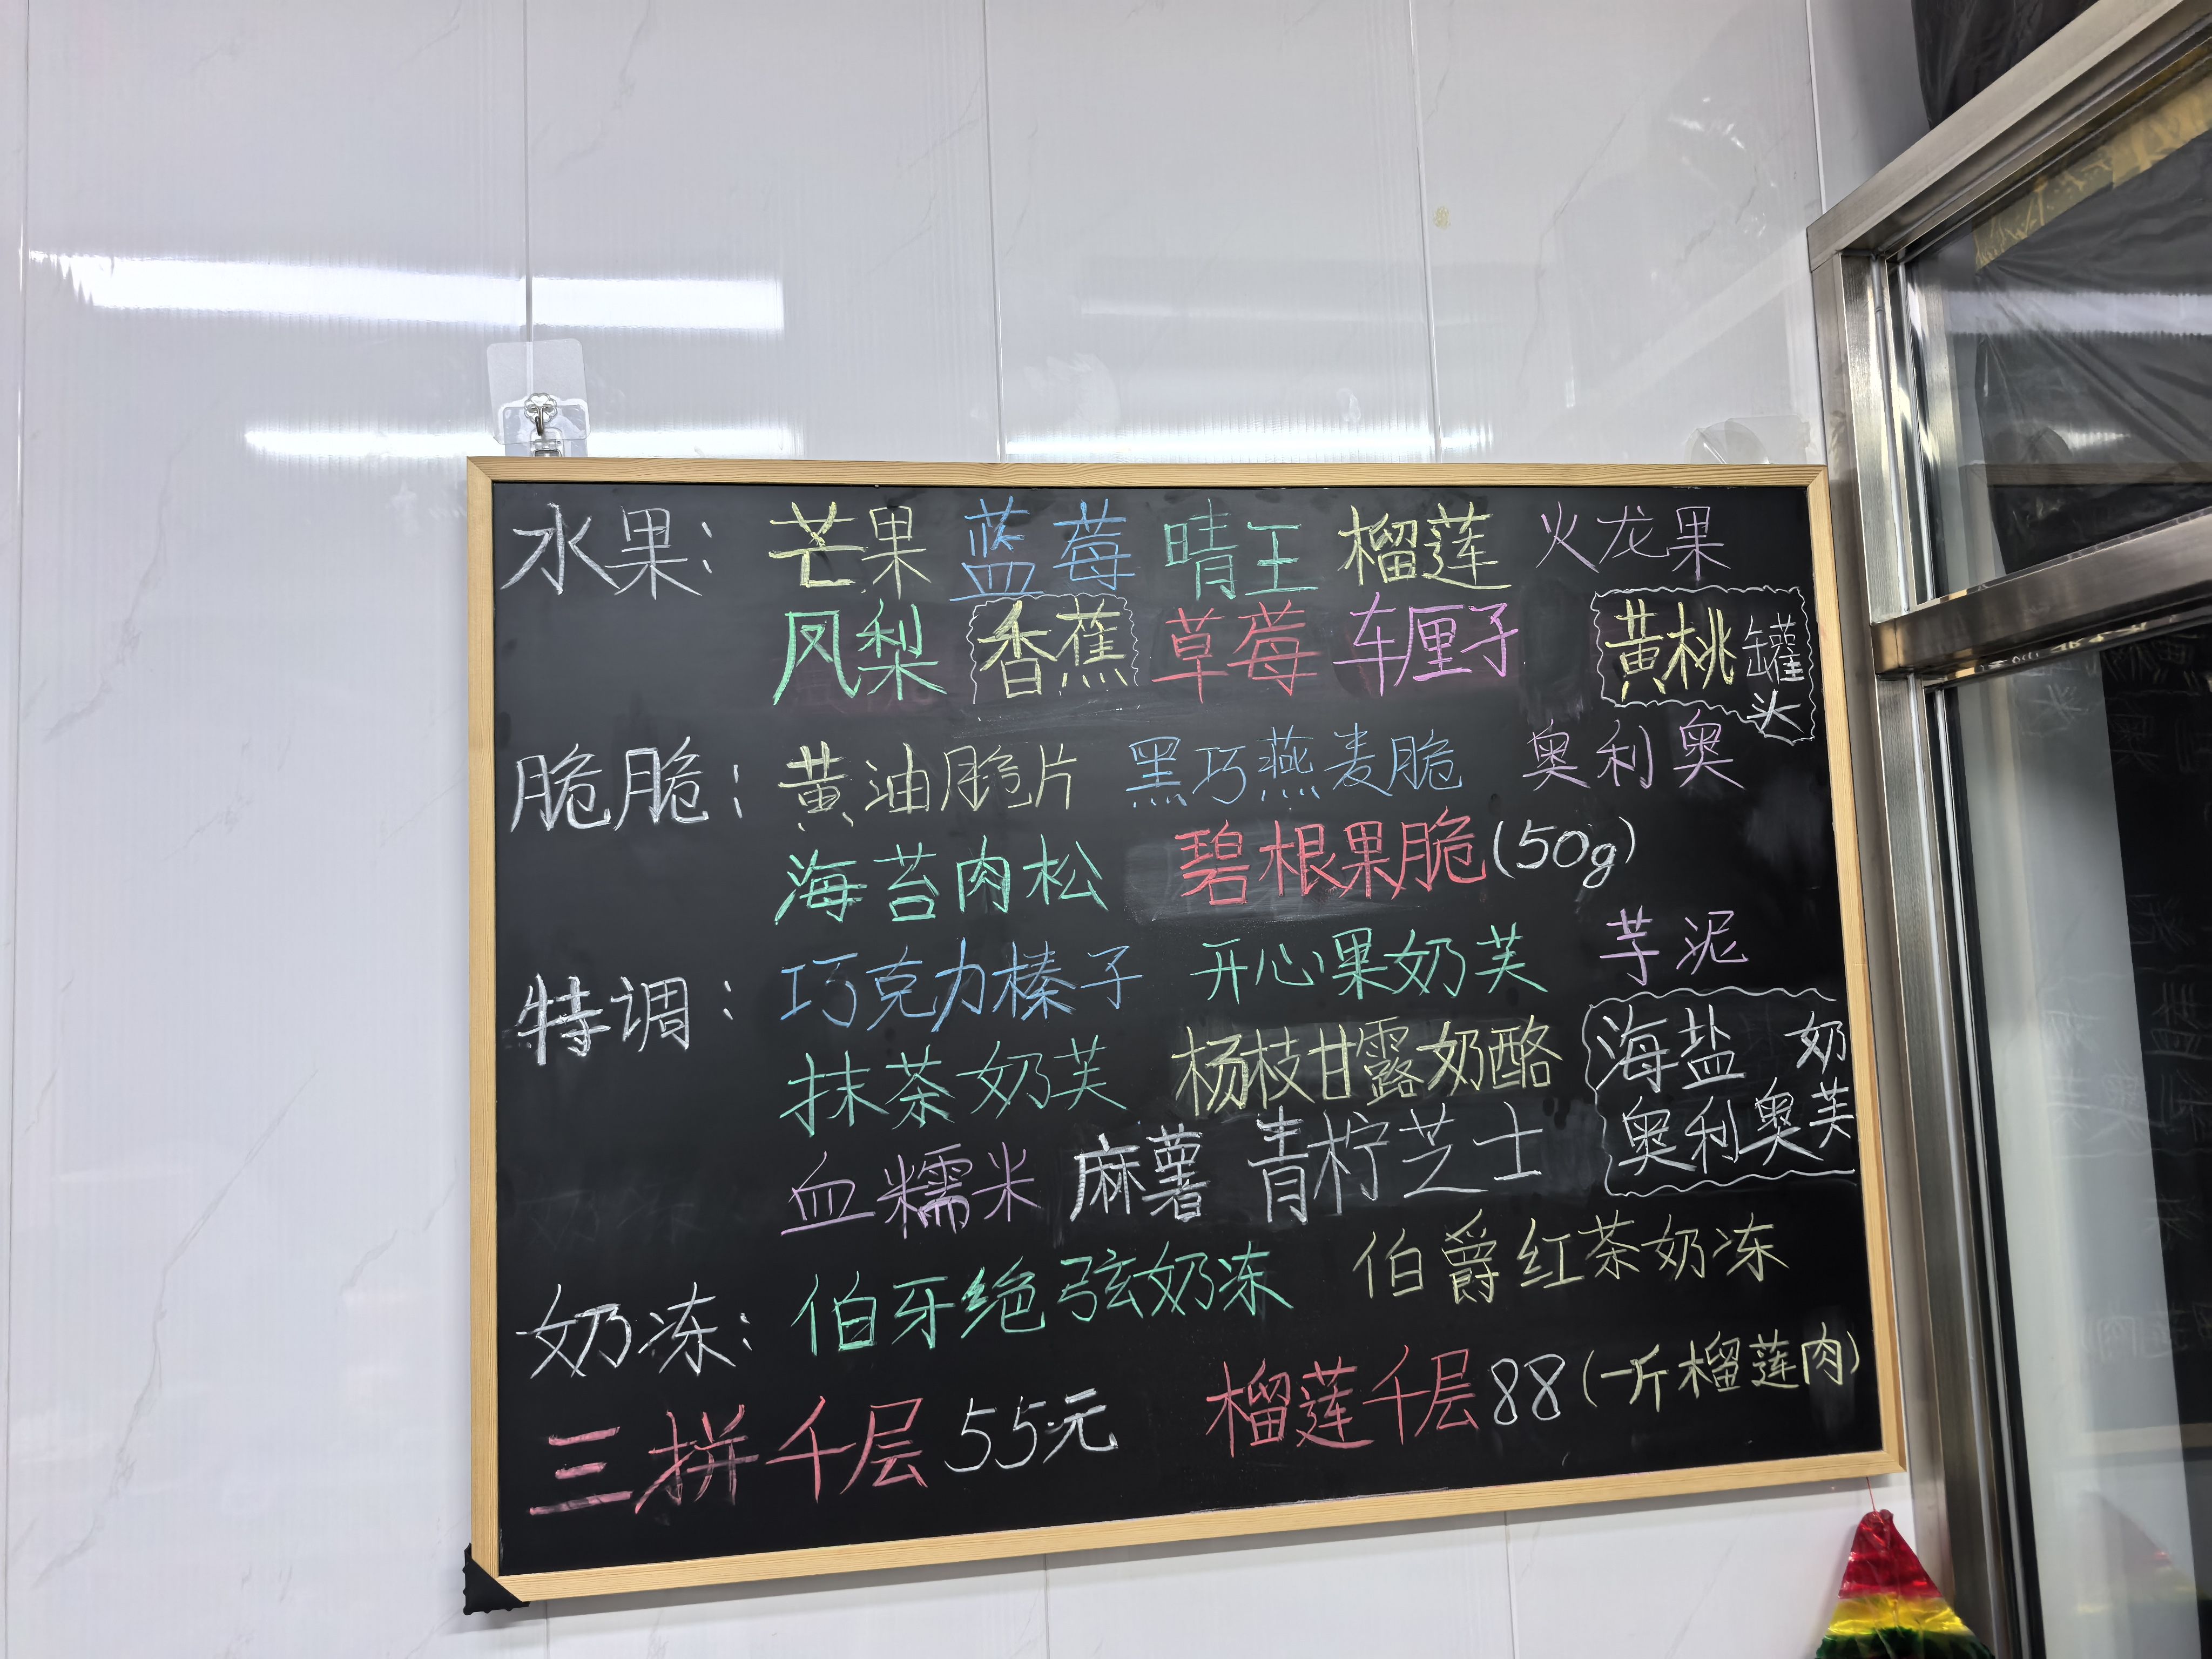 水果： 芒果 蓝莓 晴王 榴莲 火龙果
凤梨 香蕉 草莓 车厘子 黄桃罐头
脆脆： 黄油脆片 黑巧燕麦脆 奥利奥
海苔肉松 碧根果脆(50g)
特调： 巧克力榛子 开心果奶芙 芋泥
抹茶奶芙 杨枝甘露奶酪 海盐 奶
奥利奥芙
血糯米 麻薯 青柠芝士
奶冻： 伯牙绝弦奶冻 伯爵红茶奶冻
三拼千层 55元 榴莲千层 88 (一斤榴莲肉)